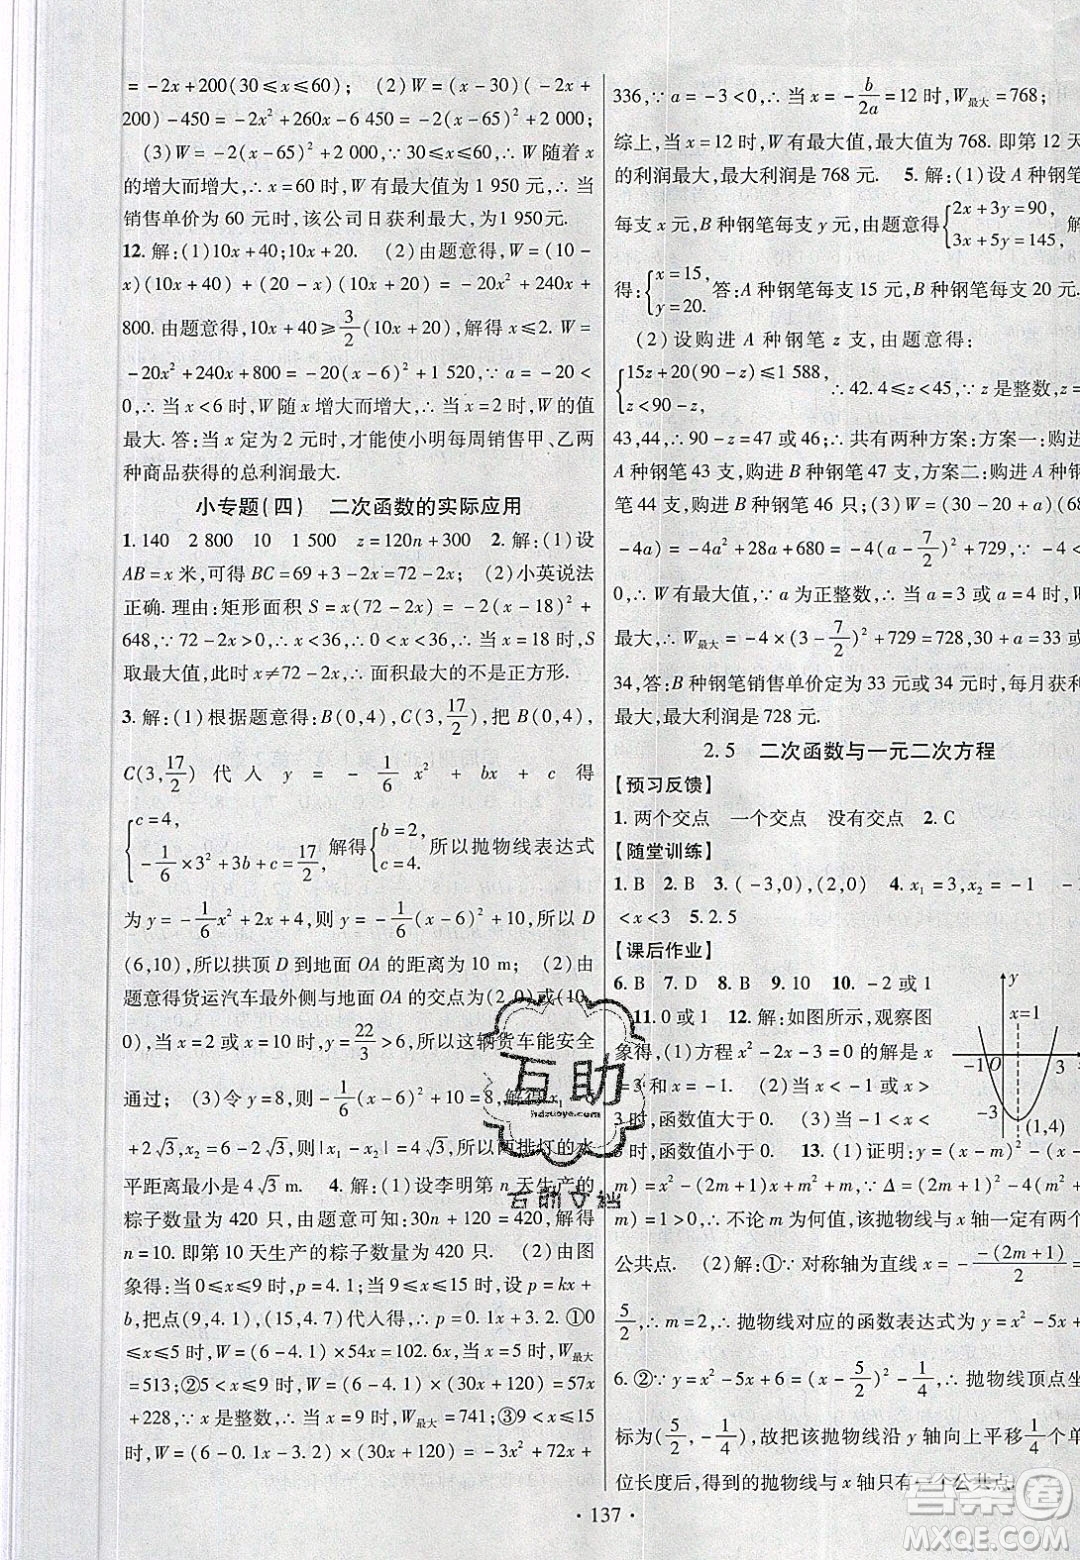 =-2x+200(30≤x≤60); (2)W=(x-30)(-2x+
200)-450=-2x²+260x-6 450=-2(x-65)²+2 000;
(3)W=-2(x-65)²+2 000,∵30≤x≤60,∴W 随着 x
的增大而增大,∴x=60 时,W 有最大值为 1 950,∴当
销售单价为 60 元时,该公司日获利最大,为 1 950元.
12. 解:(1)10x+40;10x+20. (2)由题意得,W=(10-
x)(10x+40)+(20-x)(10x+20)=-20x²+240x+
800. 由题意得,10x+40≥3/2(10x+20),解得 x≤2. W=
-20x²+240x+800=-20(x-6)²+1 520,∵a=-20<
0,∴当 x<6 时,W 随 x 增大而增大,∴当 x=2 时,W 的值
最大. 答:当 x 定为 2 元时,才能使小明每周销售甲、乙两
种商品获得的总利润最大.
小专题(四) 二次函数的实际应用
1. 140 2 800 10 1 500 z=120n+300 2. 解:(1)设
AB=x 米,可得 BC=69+3-2x=72-2x; (2)小英说法
正确. 理由:矩形面积 S=x(72-2x)=-2(x-18)²+
648,∵72-2x>0,∴x<36,∴0<x<36,∴当 x=18 时,S
取最大值,此时 x≠72-2x,∴面积最大的不是正方形.
3. 解:(1)根据题意得:B(0,4),C(3,17/2),把 B(0,4),
C(3,17/2) 代入 y = -1/6 x² + bx + c 得
{c=4, -1/6×3²+3b+c=17/2, 解得{b=2, c=4. 所以抛物线表达式
为 y=-1/6x²+2x+4,则 y=-1/6(x-6)²+10,所以 D
(6,10),所以拱顶 D 到地面 OA 的距离为 10 m; (2)由
题意得货运汽车最外侧与地面 OA 的交点为(2,0)或(10,
0),当 x=2 或 x=10 时,y=22/3>6,所以这辆货车能安全
通过; (3)令 y=8,则-1/6(x-6)²+10=8,解得 x₁=6
+2√3,x₂=6-2√3,则|x₁-x₂|=4√3,所以两排灯的水
平距离最小是 4√3 m. 4. 解:(1)设李明第 n 天生产的
粽子数量为 420 只,由题意可知:30n+120=420,解得
n=10. 即第 10 天生产的粽子数量为 420 只. (2)由图
象得:当 0≤x≤9 时,p=4. 1;当 9≤x≤15 时,设 p=kx+
b,把点(9,4. 1),(15,4. 7)代入得,∴p=0. 1x+3. 2. ①0
≤x≤5 时,W=(6-4. 1)×54x=102. 6x,当 x=5 时,W最大
=513;②5<x≤9 时,W=(6-4. 1)(30x+120)=57x
+228,∵x 是整数,∴当 x=9 时,W最大=741;③9<x≤15
时,W=(6-0. 1x-3. 2)×(30x+120)=-3x²+72x+
336,∵a=-3<0,∴当 x=-b/2a=12 时,W最大=768;
综上,当 x=12 时,W 有最大值,最大值为 768. 即第 12 天
的利润最大,最大利润是 768 元. 5. 解:(1)设 A 种钢笔
每支 x 元,B 种钢笔每支 y 元,由题意得{2x+3y=90, 3x+5y=145, 解
得:{x=15, y=20. 答:A 种钢笔每支 15 元,B 种钢笔每支 20 元.
(2)设购进 A 种钢笔 z 支,由题意得:
{15z+20(90-z)≤1 588, z<90-z, ∴42. 4≤z<45,∵z 是整数,z=
43,44,∴90-z=47 或 46;∴共有两种方案:方案一:购进
A 种钢笔 43 支,购进 B 种钢笔 47 支,方案二:购进 A 种
钢笔 44 支,购进 B 种钢笔 46 只; (3)W=(30-20+a)(68
-4a)=-4a²+28a+680=-4(a-7/2)²+729,∵-4<
0,∴W 有最大值,∵a 为正整数,∴当 a=3 或 a=4 时,W
最大,∴W最大=-4×(3-7/2)²+729=728,30+a=33 或
34,答:B 种钢笔销售单价定为 33 元或 34 元时,每月获利
最大,最大利润是 728 元.
2.5 二次函数与一元二次方程
【预习反馈】
1. 两个交点 一个交点 没有交点 2. C
【随堂训练】
1. B 2. B 3. (-3,0),(2,0) 4. x₁=3,x₂=-1 -1
<x<3 5. 2. 5
【课后作业】
6. B 7. D 8. B 9. 10 10. -2 或 1
11. 0 或 1 12. 解:如图所示,观察图
象得,(1)方程 x²-2x-3=0 的解是 x
=3 和 x=-1. (2)当 x<-1 或 x>
3 时,函数值大于 0. (3)当-1<x<
3 时,函数值小于 0. 13. (1)证明:y=(x-
m)²-(x-m)=x²-(2m+1)x+m²+m,∵Δ=(2m+1)²-4(m²+
m)=1>0,∴不论 m 为何值,该抛物线与 x 轴一定有两个
公共点. (2)解:①∵对称轴为直线 x=- -(2m+1)/2 =
5/2,∴m=2,∴抛物线对应的函数表达式为 y=x²-5x+
6. ②∵y=x²-5x+6=(x-5/2)²-1/4,∴抛物线顶点坐
标为(5/2,-1/4),故把该抛物线沿 y 轴向上平移 1/4 个单
位长度后,得到的抛物线与 x 轴只有一个公共点.
y
x=1
-1 O 3
-3
(1,4)
· 137 ·
互助
hdzuoye.com
答案圈
MXQE.COM